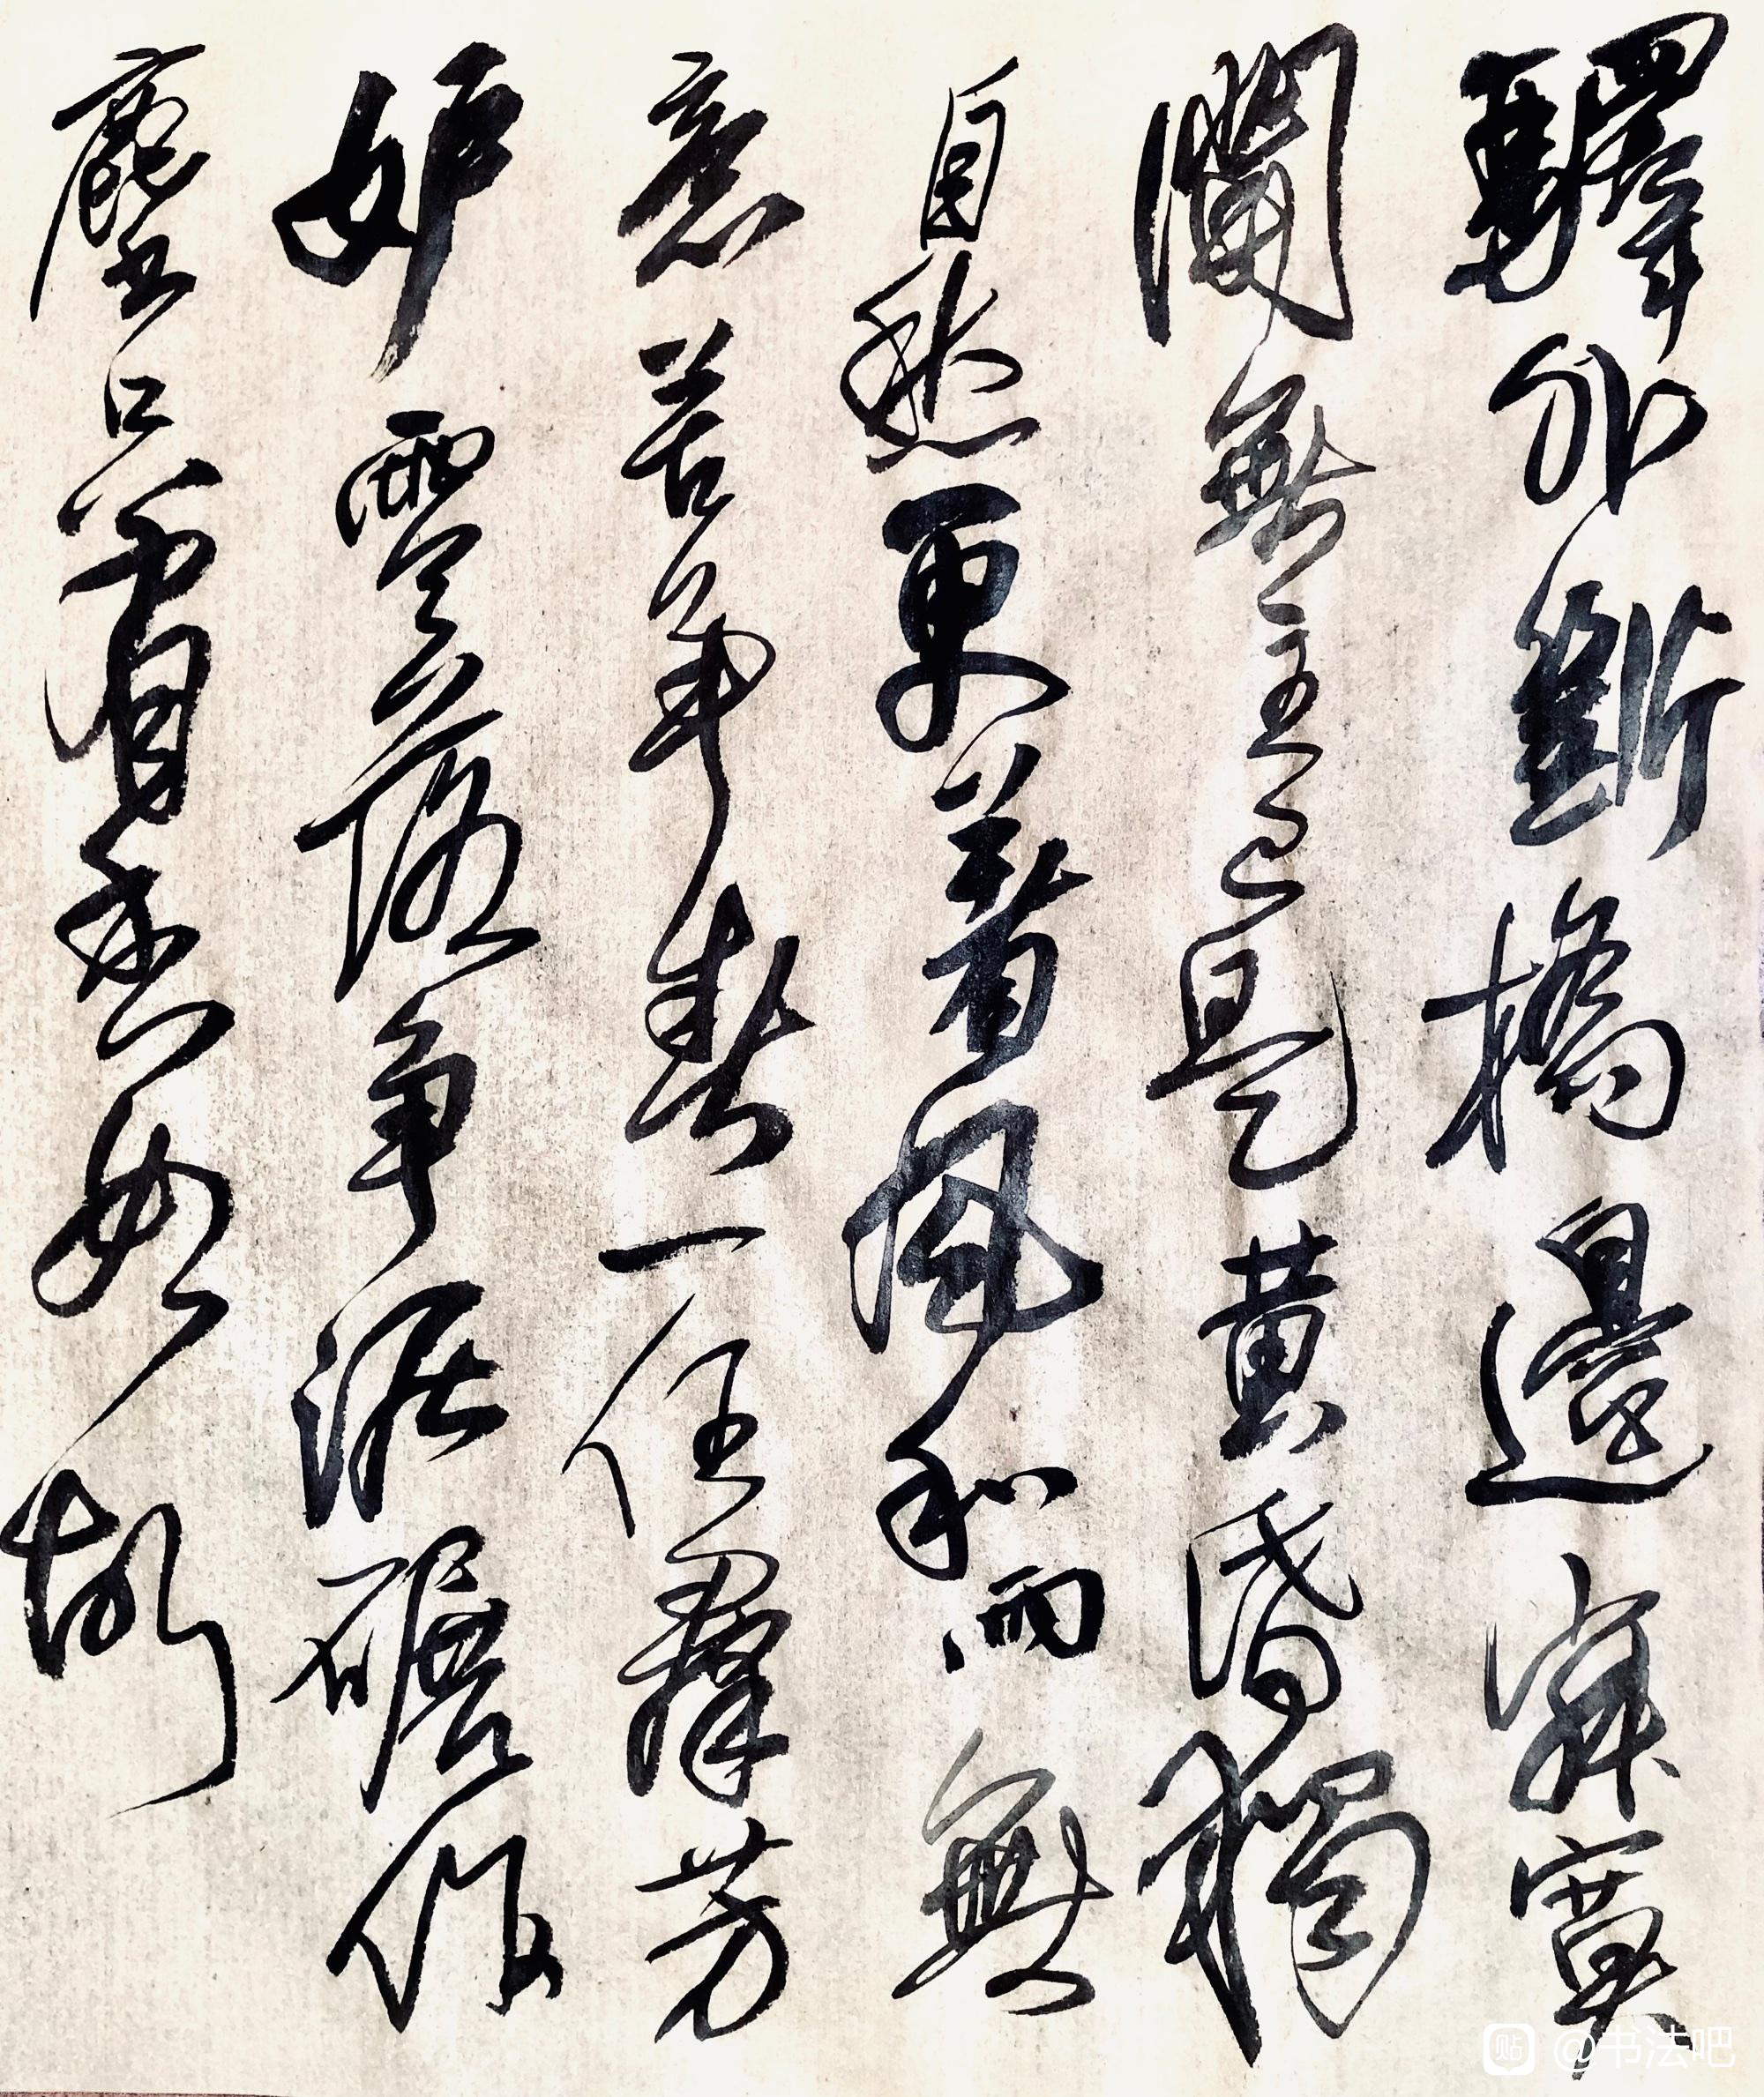 驛外斷橋邊寂寞
開無主已是黄昏獨
自愁更著風和雨無
意苦争春一任羣芳
妒零落争泥碾作
塵只有香如故
@书法吧